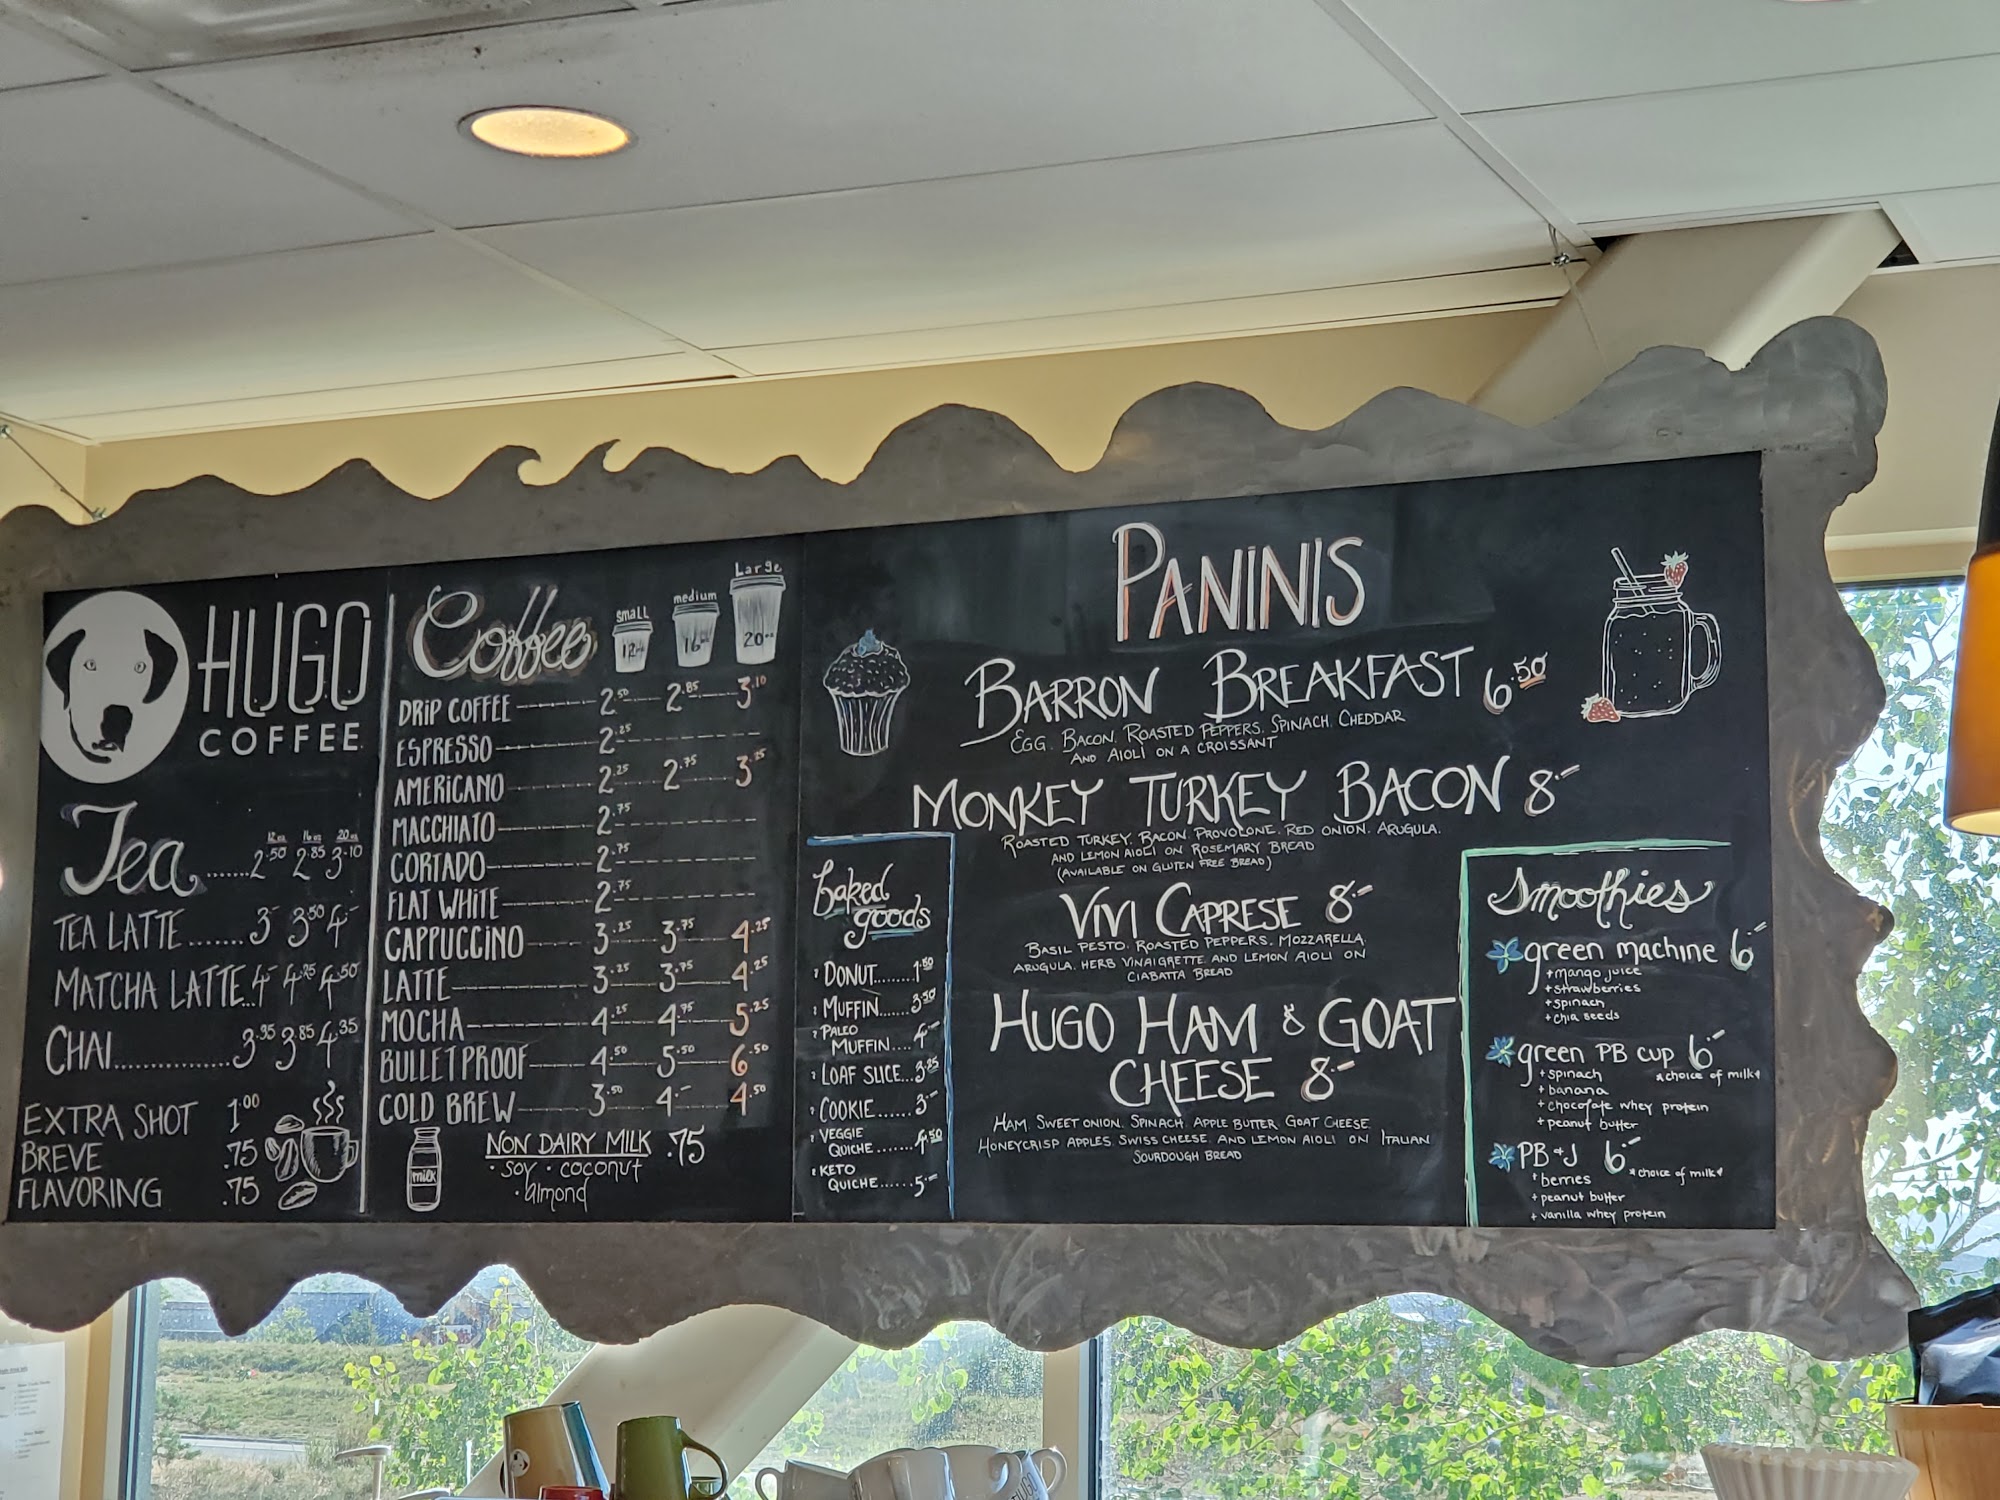 HUGO
COFFEE
Tea
12 oz 16 oz 20 oz
2.50 2.85 3.10
TEA LATTE.......3- 3.50 4-
MATCHA LATTE...4- 4.25 4.50
CHAI..............3.35 3.85 4.35
EXTRA SHOT 1.00
BREVE .75
FLAVORING .75
Coffee
small medium Large
12oz 16oz 20oz
DRIP COFFEE 2.50 2.85 3.10
ESPRESSO 2.25
AMERICANO 2.25 2.75 3.25
MACCHIATO 2.75
CORTADO 2.75
FLAT WHITE 2.75
CAPPUCCINO 3.25 3.75 4.25
LATTE 3.25 3.75 4.25
MOCHA 4.25 4.75 5.25
BULLETPROOF 4.50 5.50 6.50
COLD BREW 3.50 4.- 4.50
milk
NON DAIRY MILK .75
• soy • coconut
• almond
PANINIS
BARRON BREAKFAST 6.50
EGG, BACON, ROASTED PEPPERS, SPINACH, CHEDDAR
AND AIOLI ON A CROISSANT
MONKEY TURKEY BACON 8.-
ROASTED TURKEY, BACON, PROVOLONE, RED ONION, ARUGULA,
AND LEMON AIOLI ON ROSEMARY BREAD
(AVAILABLE ON GLUTEN FREE BREAD)
VIVI CAPRESE 8.-
BASIL PESTO, ROASTED PEPPERS, MOZZARELLA,
ARUGULA, HERB VINAIGRETTE AND LEMON AIOLI ON
CIABATTA BREAD
HUGO HAM & GOAT
CHEESE 8.-
HAM, SWEET ONION, SPINACH, APPLE BUTTER, GOAT CHEESE,
HONEYCRISP APPLES, SWISS CHEESE, AND LEMON AIOLI ON ITALIAN
SOURDOUGH BREAD
baked
goods
DONUT........1.50
MUFFIN.......3.50
PALEO
MUFFIN....4.-
LOAF SLICE...3.25
COOKIE......3.-
VEGGIE
QUICHE.......4.50
KETO
QUICHE......5.-
Smoothies
green machine 6.-
+mango juice
+strawberries
+spinach
+chia seeds
green PB cup 6.-
+spinach *choice of milk*
+banana
+chocolate whey protein
+peanut butter
PB+J 6.-
+berries *choice of milk*
+peanut butter
+vanilla whey protein